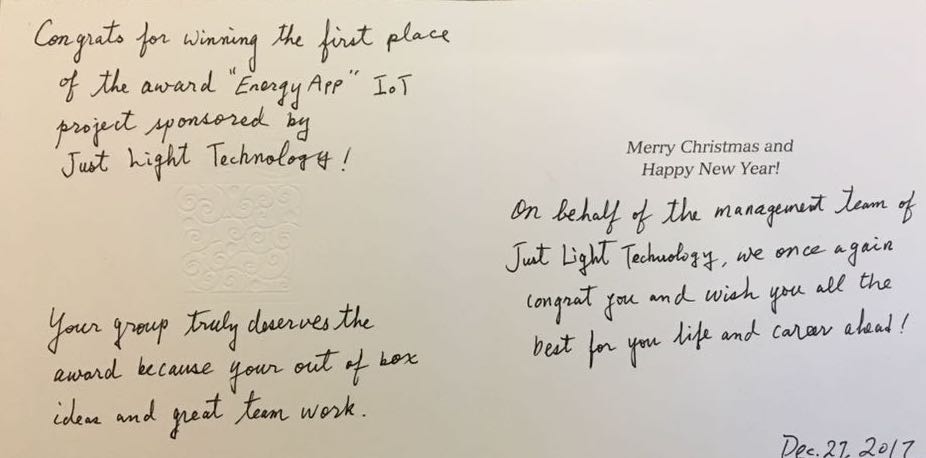 Congrats for winning the first place
of the award "Energy App" IoT
project sponsored by
Just Light Technology!
Your group truly deserves the
award because your out of box
ideas and great team work.
Merry Christmas and
Happy New Year!
On behalf of the management team of
Just Light Technology, we once again
congrat you and wish you all the
best for you life and career ahead!
Dec. 27, 2017